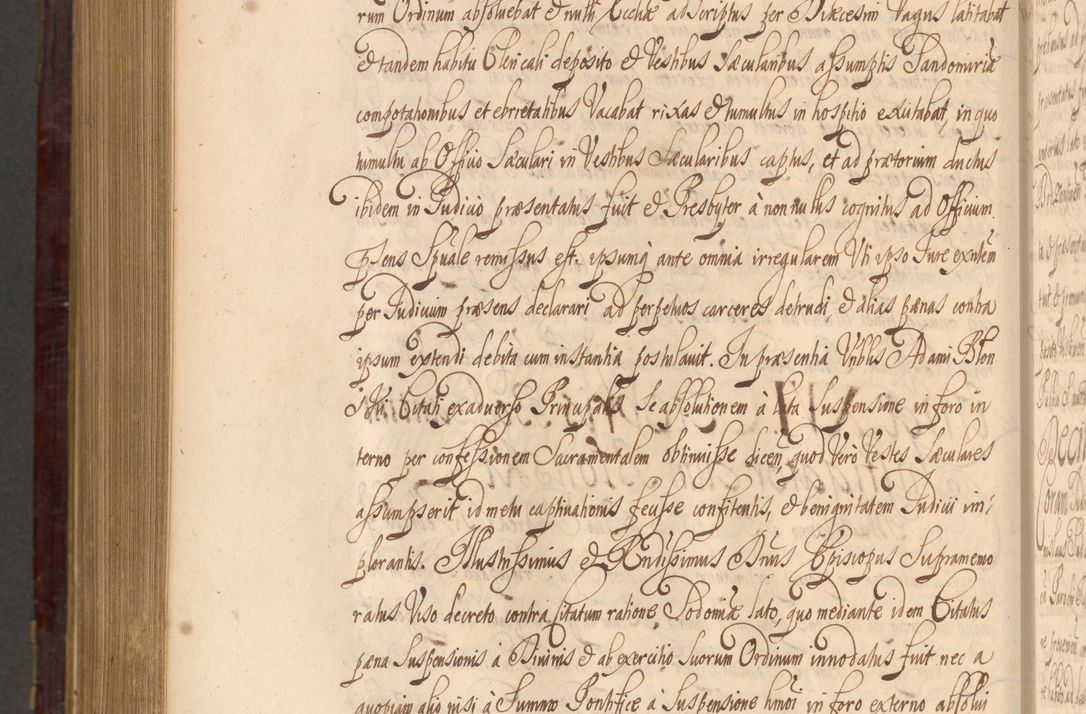 rum Ordinum absoluebat & nulli Ecclīæ adscriptus per Diæcesim Vagus latitabat
& tandem habitu Clericali deposito & Vestibus Sæcularibus assumptis Sandomiriæ
compotationibus et ebrietatibus Vacabat rixas & tumultus in hospitio excitabat, in quo
tumultu ab Officio Sæculari in Vestibus Sæcularibus captus, et ad prætorium ductus
ibidem in Judicio præsentatus fuit & Presbyter à nonnullis cognitus ad Officium
pñsens Spũale remissus est. ipsumq̃ ante omnia irregularem Uti ipso Jure exñtem
per Judicium præsens declarari ad perpetuos carceres detrudi, & alias pænas contra
ipsum extendi debita cum instantia postulavit. In præsentia Vñblis Adami Blon
Citati ex adverso Principalis Se absolutionem à lata Suspensione in foro in
terno per confessionem Sacramentalem obtinuisse dicen̄, quod Verò Vestes Sæculares
assumpserit id metu captivationis fecisse confitentis, & benignitatem Judicii im:
plorantis. Illustrissimus & Rñdissimus Dñus Episcopus Supramemo
ratus Viso decreto contra Citatum ratione Sodomiæ lato, quo mediante idem Citatus
pæna Suspensionis à Divinis & ab exercitio Suorum Ordinum innodatus fuit nec a
quopiam alio nisi à Summo Pontifice à Suspensione hm̃oi in foro externo absolvi